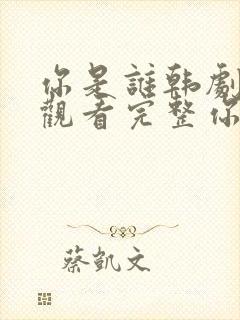 你是誰韓劇
觀看完整你
蔡凱文